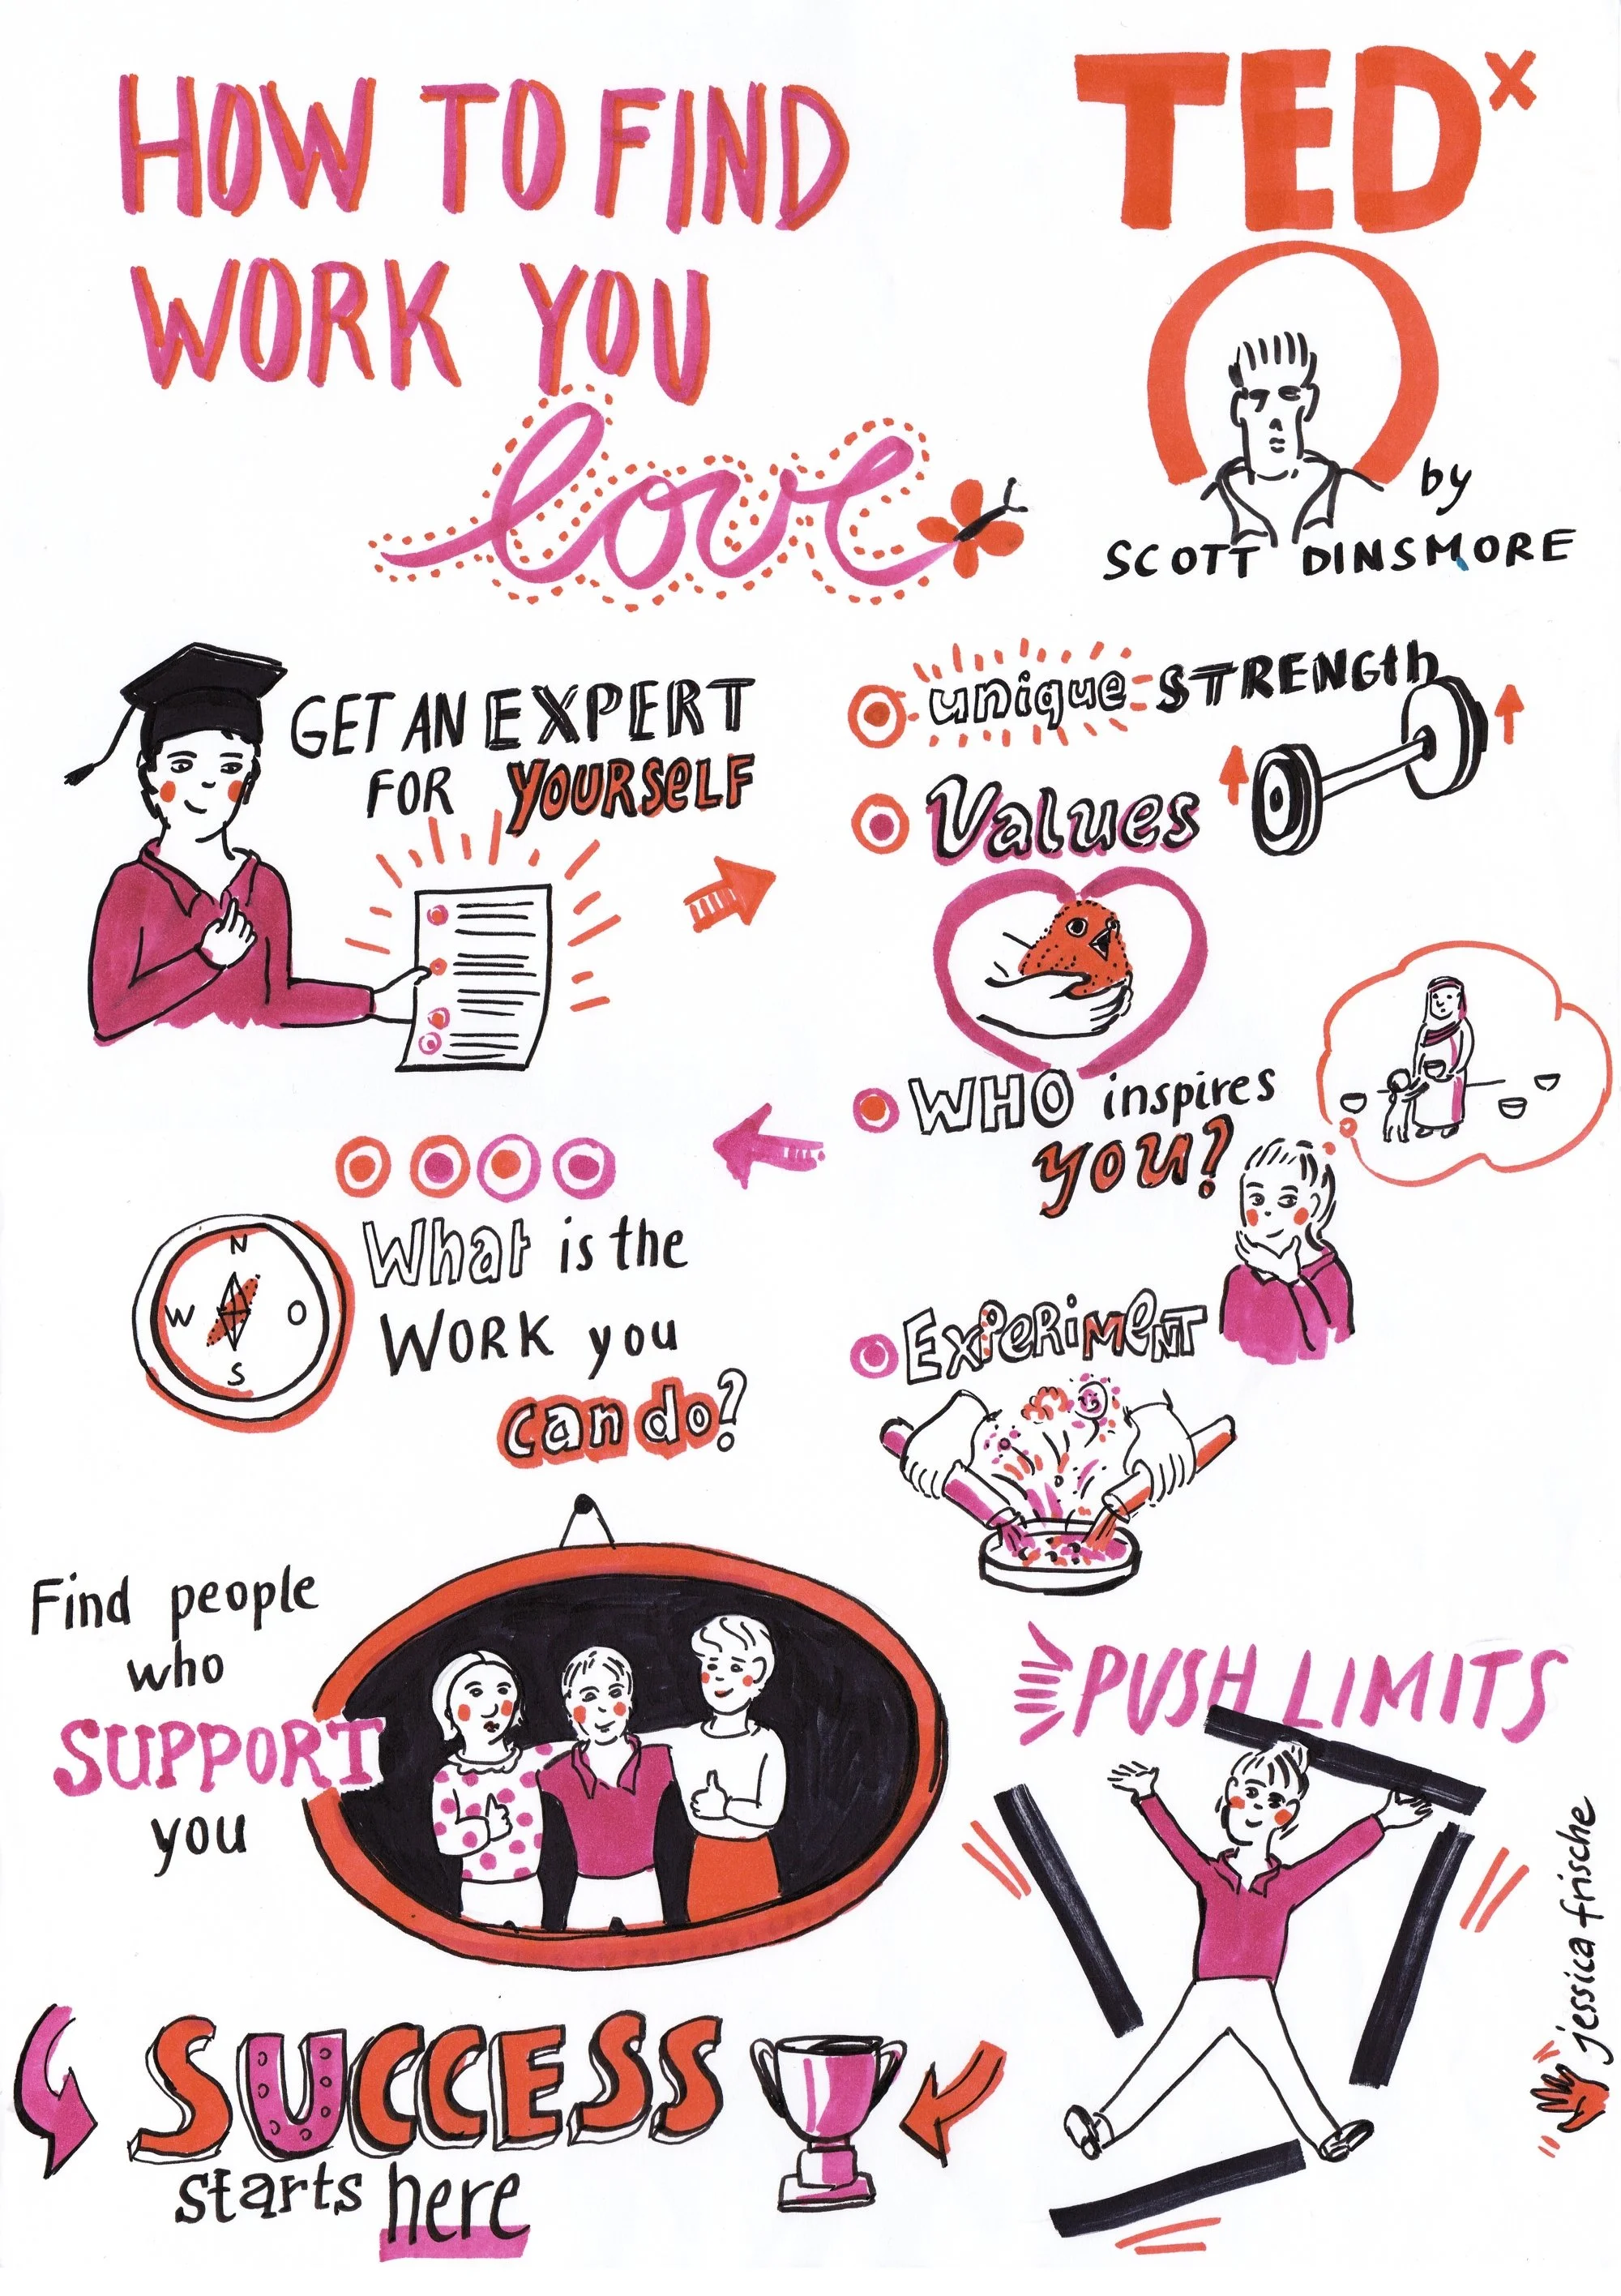 HOW TO FIND
WORK YOU
love
TEDx
by
SCOTT DINSMORE
GET AN EXPERT
FOR YOURSELF
unique STRENGTH
Values
WHO inspires
you?
EXPERIMENT
What is the
WORK you
can do?
N
W O
S
Find people
who
SUPPORT
you
PUSH LIMITS
SUCCESS
starts here
jessica frische